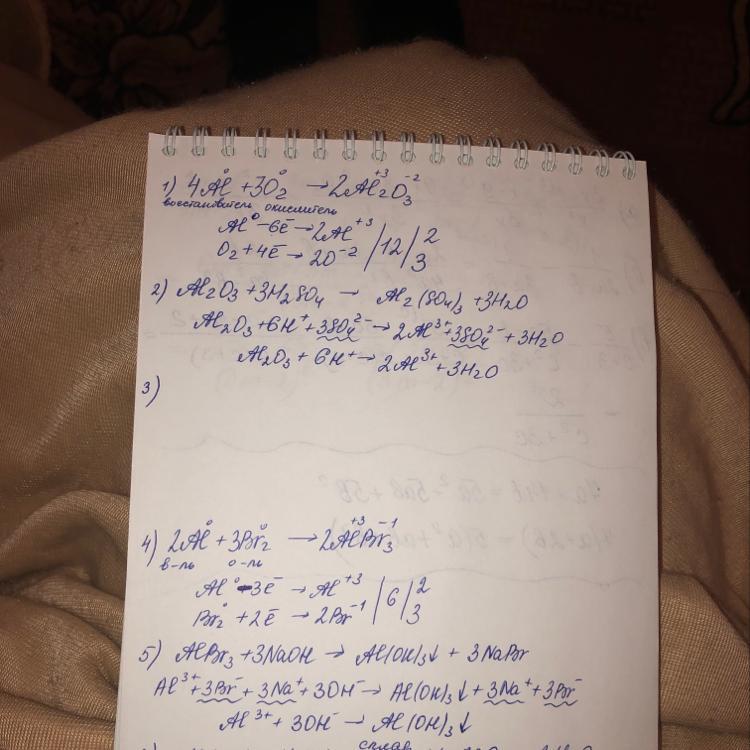 1) 4Al⁰ + 3O₂⁰ → 2Al₂⁺³O₃⁻²
восстановитель окислитель
Al⁰ - 6ē → 2Al⁺³ | 12 | 2
O₂ + 4ē → 2O⁻² | 3
2) Al₂O₃ + 3H₂SO₄ → Al₂(SO₄)₃ + 3H₂O
Al₂O₃ + 6H⁺ + 3SO₄²⁻ → 2Al³⁺ + 3SO₄²⁻ + 3H₂O
Al₂O₃ + 6H⁺ → 2Al³⁺ + 3H₂O
3)
4) 2Al⁰ + 3Br₂⁰ → 2Al⁺³Br₃⁻¹
в-ль о-ль
Al⁰ - 3ē → Al⁺³ | 6 | 2
Br₂⁰ + 2ē → 2Br⁻¹ | 3
5) AlBr₃ + 3NaOH → Al(OH)₃↓ + 3NaBr
Al³⁺ + 3Br⁻ + 3Na⁺ + 3OH⁻ → Al(OH)₃↓ + 3Na⁺ + 3Br⁻
Al³⁺ + 3OH⁻ → Al(OH)₃↓
сплав